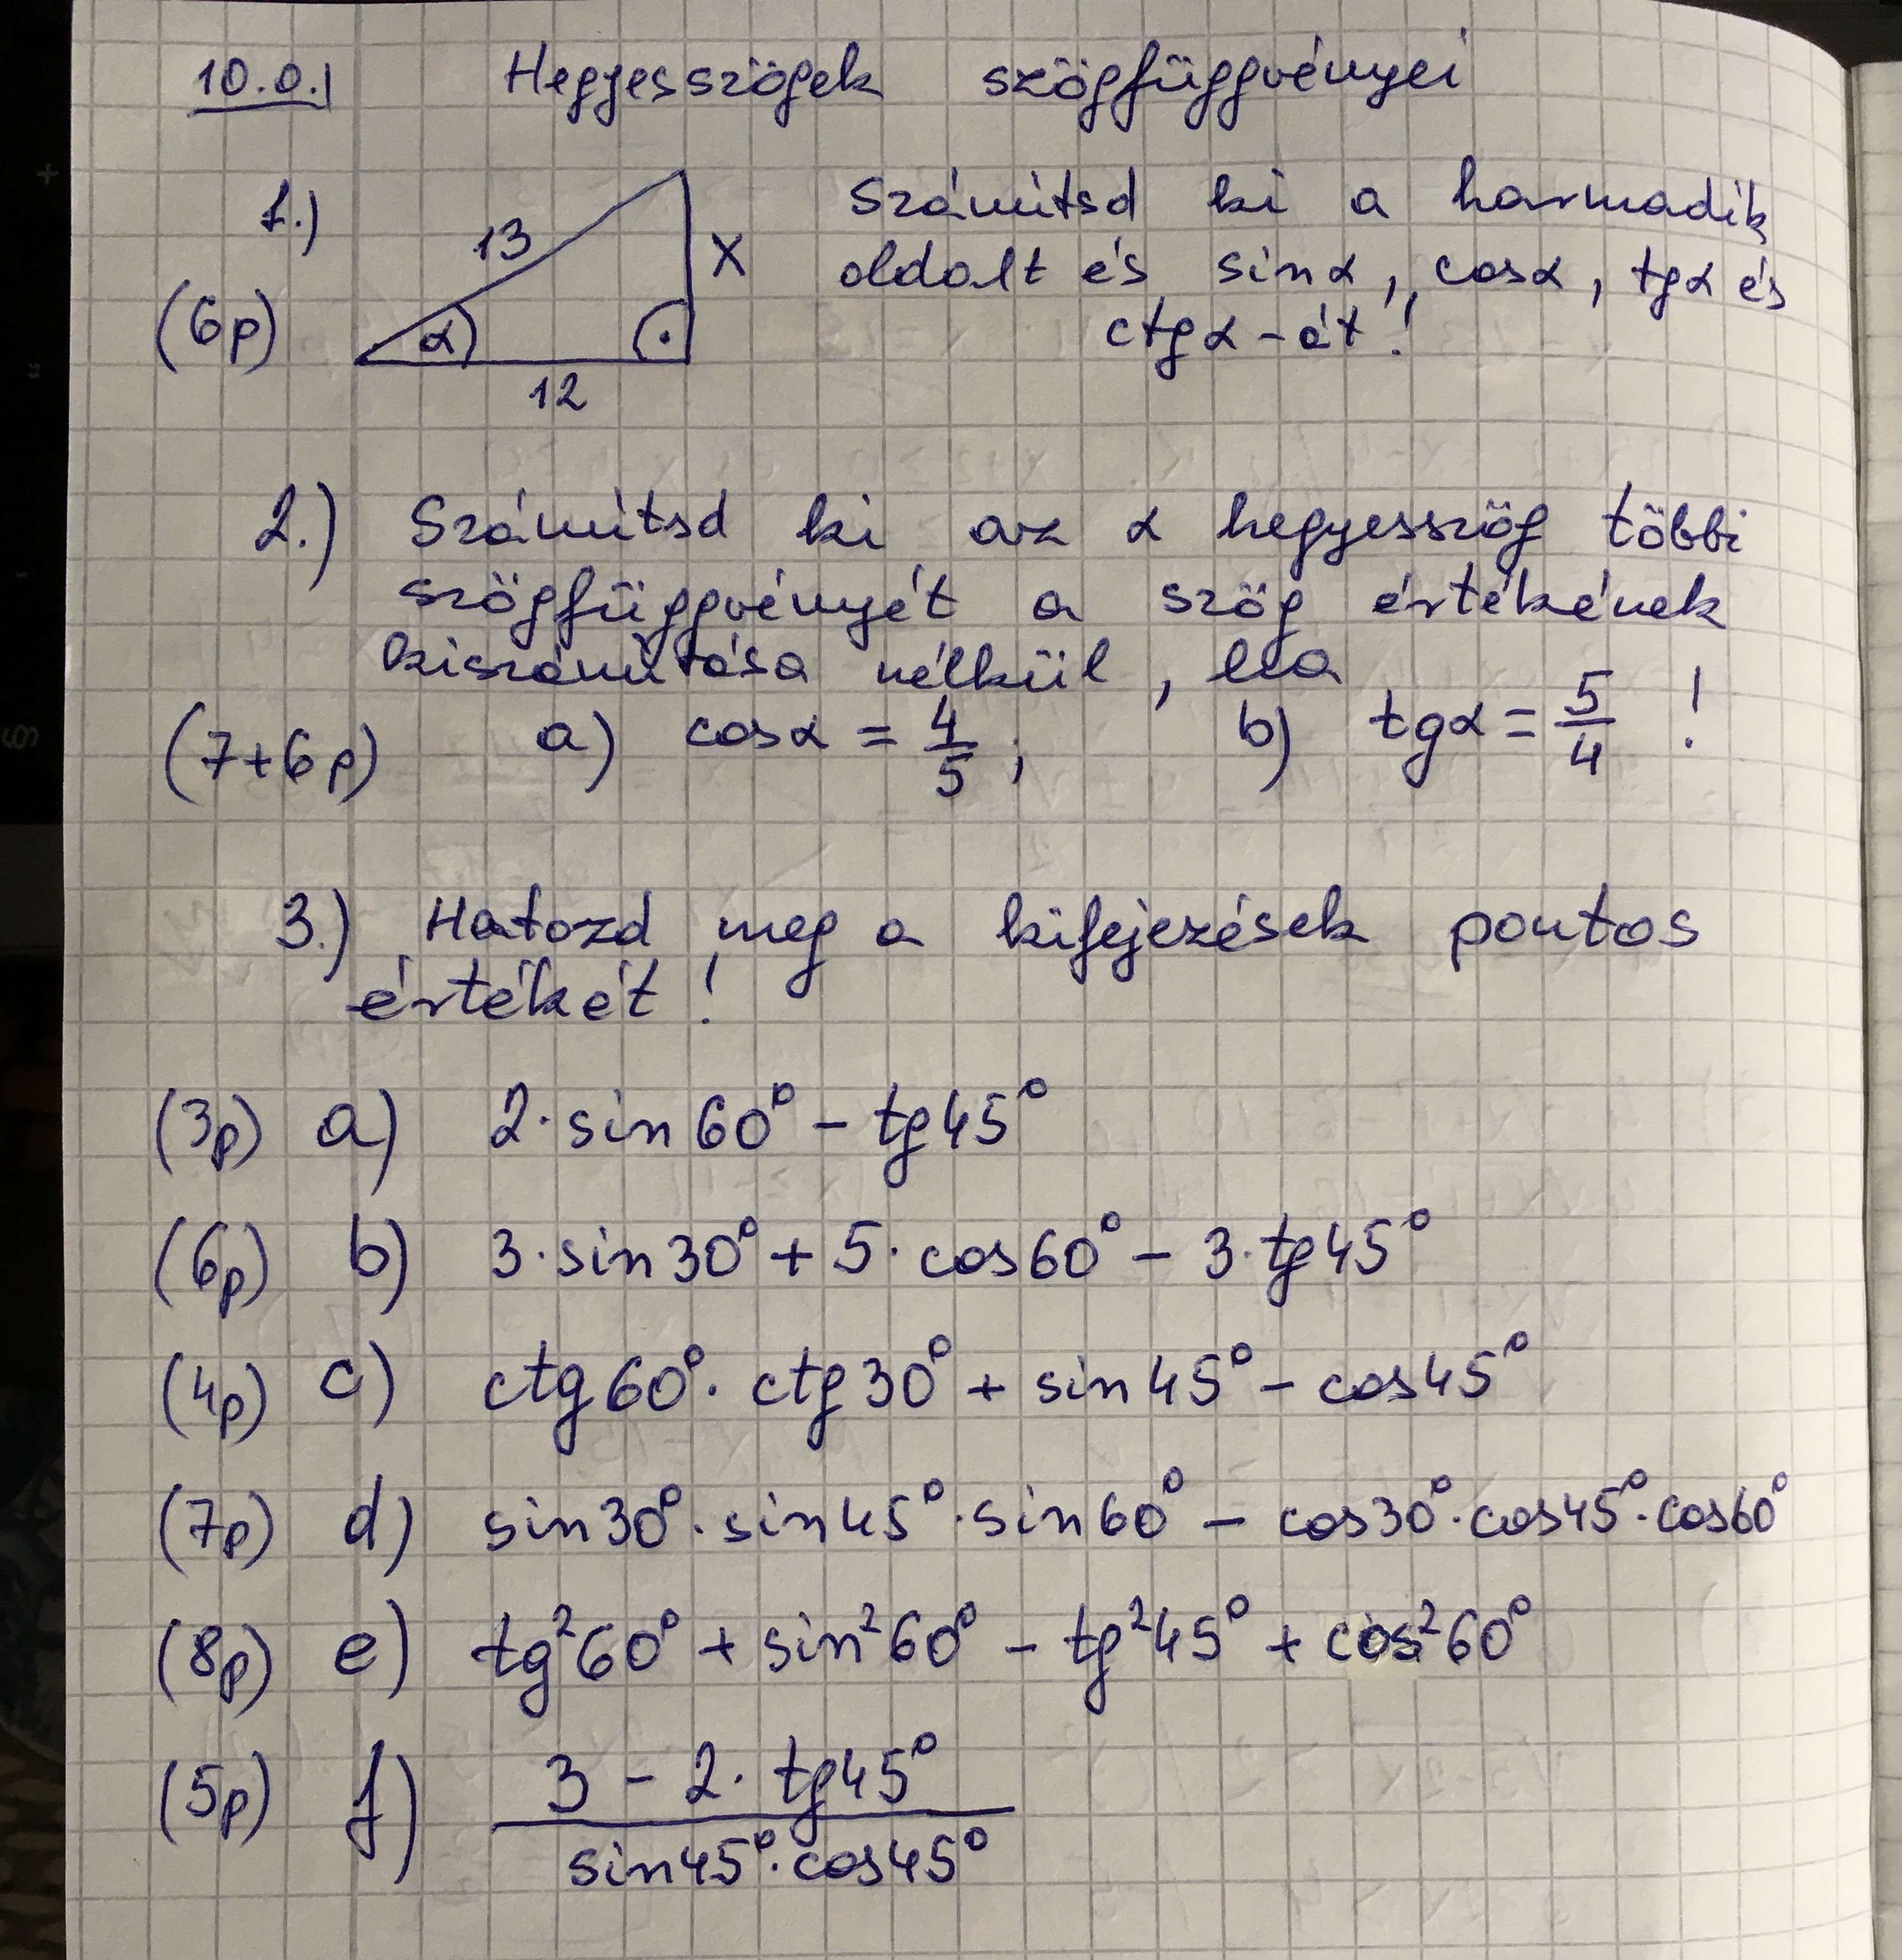 10.o. Hegyesszögek szögfüggvényei
1.) 13 x Számítsd ki a harmadik
oldalt és sinα, cosα, tgα és
(6p) α 12 ctgα-át!
2.) Számítsd ki az α hegyesszög többi
szögfüggvényét a szög értékének
kiszámítása nélkül, ha
(7+6p) a) cosα = 4/5; b) tgα = 5/4 !
3.) Hatozd meg a kifejezések pontos
értékét!
(3p) a) 2·sin60° - tg45°
(6p) b) 3·sin30° + 5·cos60° - 3·tg45°
(4p) c) ctg60°·ctg30° + sin45° - cos45°
(7p) d) sin30°·sin45°·sin60° - cos30°·cos45°·cos60°
(8p) e) tg²60° + sin²60° - tg²45° + cos²60°
(5p) f) 3 - 2·tg45°
sin45°·cos45°